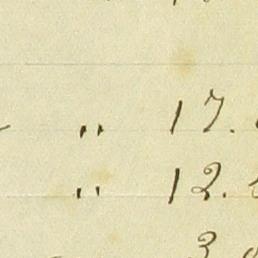 " 17.
" 12.
3